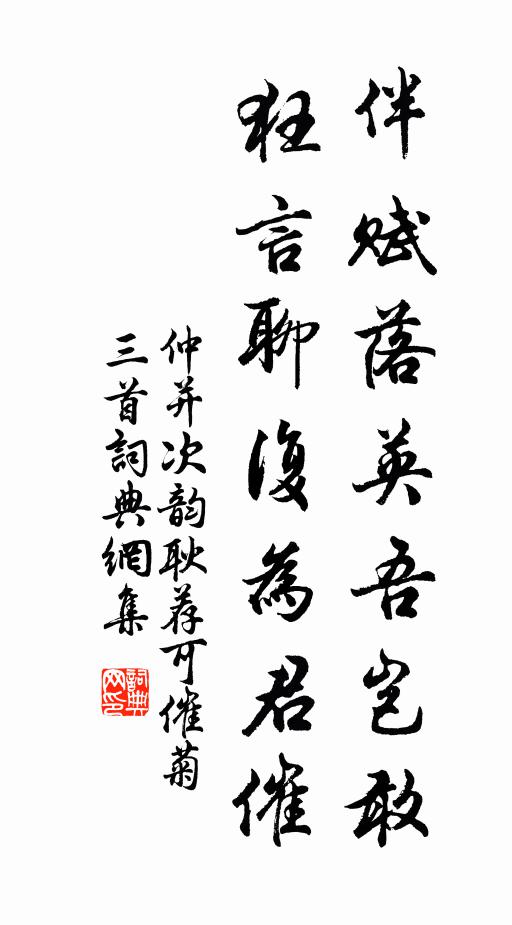 伴賦落英吾豈敢
狂言聊復為君催
仲并次韵耿荐可催菊
三首詞典網集
詞典网印